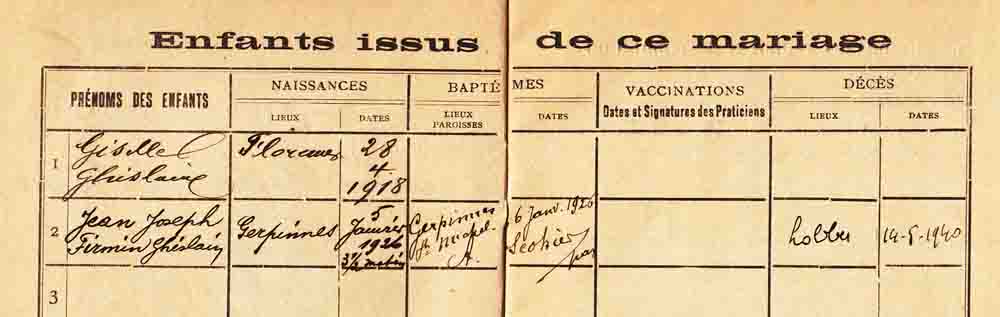 Enfants issus de ce mariage
PRÉNOMS DES ENFANTS
NAISSANCES
BAPTÉMES
VACCINATIONS
Dates et Signatures des Praticiens
DÉCÈS
LIEUX
DATES
LIEUX
PAROISSES
DATES
LIEUX
DATES
1
Giselle
Ghislaine
28
4
1918
2
Jean Joseph
Firmin Ghislain
Gerpinnes
5
Janvier
1926
Gerpinnes
St Michel
6 Janv. 1926
Lobbes
14-5-1940
3